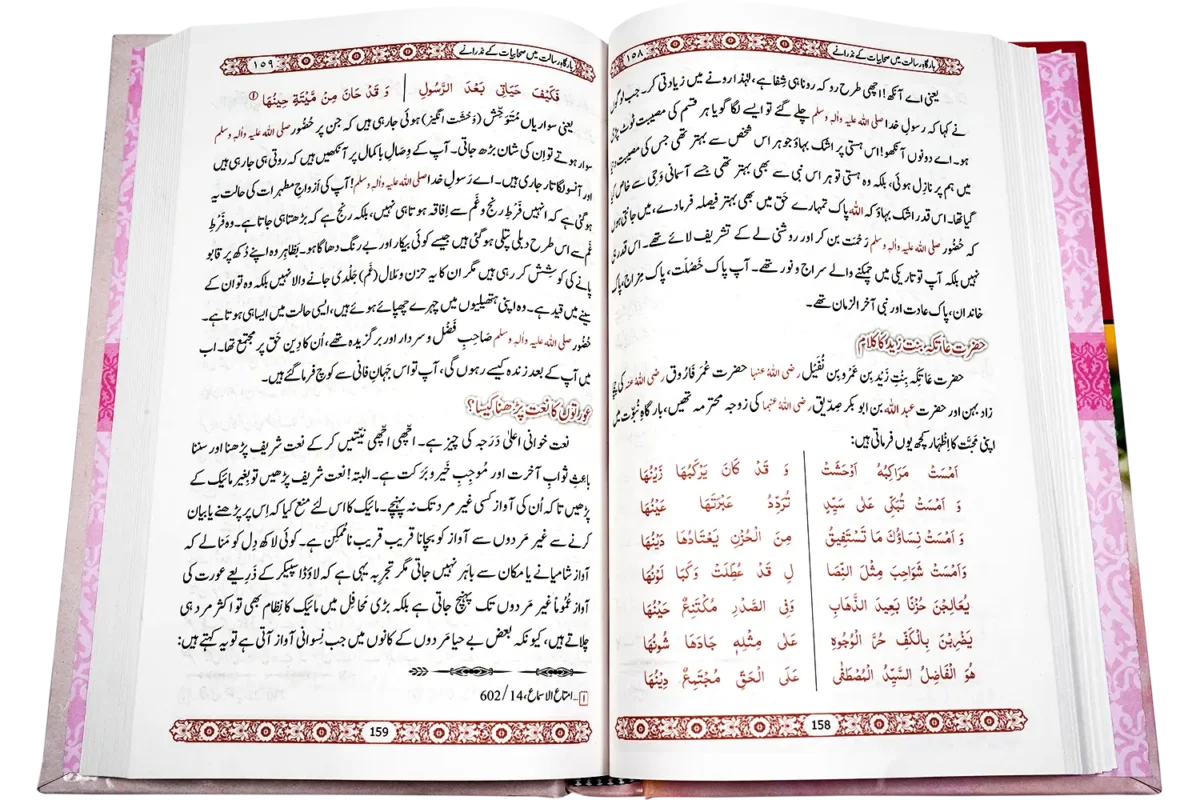 ۱۵۸ بارگاہِ رسالت میں صحابیات کے نذرانے
یعنی اے آنکھ! اچھی طرح رو کہ رونا ہی شِفا ہے، لہٰذا رونے میں زیادتی کر۔ جب لوگوں
نے کہا کہ رسولِ خدا صلی اللہ علیہ واٰلہٖ وسلم چلے گئے تو ایسے لگا گویا ہر قسم کی مصیبت ٹوٹ پڑی
ہو۔ اے دونوں آنکھو! اس ہستی پر اشک بہاؤ جو ہر اس شخص سے بہتر تھی جس کی مصیبت
میں ہم پر نازِل ہوئی، بلکہ وہ ہستی تو ہر اس نبی سے بھی بہتر تھی جسے آسمانی وَحِی سے خاص کیا
گیا تھا۔ اس قدر اشک بہاؤ کہ اللہ پاک تمہارے حَق میں بھی بہتر فیصلہ فرما دے، میں جانتی ہوں
کہ حُضُور صلی اللہ علیہ واٰلہٖ وسلم رَحْمَت بن کر اور روشنی لے کے تشریف لائے تھے۔ اس قدر ہی
نہیں بلکہ آپ تو تاریکی میں چمکنے والے سراج و نور تھے۔ آپ پاک خَصْلَت، پاک مزاج، پاک
خاندان، پاک عادت اور نبی آخر الزمان تھے۔
حضرت عاتکہ بنتِ زید کا کلام
حضرت عَاتِکَہ بِنْتِ زَیْد بِن عَمْرو بِن نُفَیْل رضی اللہ عنہا حضرت عُمَر فَارُوق رضی اللہ عنہ کی چچا
زاد بہن اور حضرت عبد اللہ بن ابو بکر صِدّیق رضی اللہ عنہما کی زوجہ محترمہ تھیں، بارگاہِ نُبُوَّت میں
اپنی مَحبَّت کا اِظْہار کچھ یوں فرماتی ہیں:
اَمْسَتْ مَرَاكِبُهُ اَوْحَشَتْ وَ قَدْ كَانَ يَرْكَبُهَا زَيْنُهَا
وَ اَمْسَتْ تُبَكِّي عَلٰى سَيِّدٍ تُرَدِّدُ عَبْرَتَهَا عَيْنُهَا
وَ اَمْسَتْ نِسَاؤُكَ مَا تَسْتَفِيْقُ مِنَ الْحُزْنِ يَعْتَادُهَا دَيْنُهَا
وَاَمْسَتْ شَوَاحِبَ مِثْلَ النِّصَا لِ قَدْ عُطِلَتْ وَكَبَا لَوْنُهَا
يُعَالِجْنَ حُزْنًا بَعِيدَ الذَّهَابِ وَفِي الصَّدْرِ مُكْتَنِعٌ حَيْنُهَا
يَضْرِبْنَ بِالْكَفِّ حُرَّ الْوُجُوهِ عَلٰى مِثْلِهٖ جَادَهَا شُونُهَا
هُوَ الْفَاضِلُ السَّيِّدُ الْمُصْطَفٰى عَلَى الْحَقِّ مُجْتَمِعٌ دِيْنُهَا
158
بارگاہِ رسالت میں صحابیات کے نذرانے ۱۵۹
فَكَيْفَ حَيَاتِي بَعْدَ الرَّسُولِ وَ قَدْ حَانَ مِنْ مَّيْتَةٍ حِينُهَا ①
یعنی سواریاں مُتَوَحِّش (وَحْشَت انگیز) ہوئی جا رہی ہیں کہ جن پر حُضُور صلی اللہ علیہ واٰلہٖ وسلم
سوار ہوتے تو اِن کی شان بڑھ جاتی۔ آپ کے وِصالِ با کمال پر آنکھیں ہیں کہ روتی ہی جا رہی ہیں
اور آنسو لگاتار جاری ہیں۔ اے رَسولِ خدا صلی اللہ علیہ واٰلہٖ وسلم! آپ کی اَزواجِ مطہرات کی حالت یہ
ہو گئی ہے کہ انہیں فَرْطِ رَنْج و غَم سے اِفاقہ ہوتا ہی نہیں، بلکہ رَنْج ہے کہ بڑھتا ہی جاتا ہے۔ وہ فَرْطِ
غَم سے اس طرح دبلی پتلی ہو گئی ہیں جیسے کوئی بیکار اور بے رنگ دھاگا ہو۔ بظاہر وہ اپنے دُکھ پر قابو
پانے کی کوشش کر رہی ہیں مگر ان کا یہ حزن و مَلال (غم) جَلْدی جانے والا نہیں بلکہ وہ تو ان کے
سینے میں قید ہے۔ وہ اپنی ہتھیلیوں میں چہرے چھپائے ہوئے ہیں، ایسی حالت میں ایسا ہی ہوتا ہے۔
حُضُور صلی اللہ علیہ واٰلہٖ وسلم صَاحِبِ فَضْل و سردار اور برگزیدہ تھے، اُن کا دین حَق پر مجتمع تھا۔ اب
میں آپ کے بعد زندہ کیسے رہوں گی، آپ تو اس جہانِ فانی سے کوچ فرما گئے ہیں۔
عورتوں کا نعت پڑھنا کیسا؟
نعت خوانی اعلیٰ دَرَجہ کی چیز ہے۔ اچّھی اچّھی نیّتیں کر کے نعت شریف پڑھنا اور سننا
باعِثِ ثوابِ آخرت اور مُوجِبِ خَیر و بَرَکت ہے۔ البتہ! نعت شریف پڑھیں تو بغیر مائیک کے
پڑھیں تا کہ اُن کی آواز کسی غیر مرد تک نہ پہنچے۔ مائیک کا اس لئے منع کیا کہ اِس پر پڑھنے یا بیان
کرنے سے غیر مَردوں سے آواز کو بچانا قریب قریب ناممکِن ہے۔ کوئی لاکھ دِل کو مَنا لے کہ
آواز شامیانے یا مکان سے باہَر نہیں جاتی مگر تجرِبہ یہی ہے کہ لاؤڈ اسپیکر کے ذَرِیعے عورت کی
آواز عُمُوماً غیر مَردوں تک پہنچ جاتی ہے بلکہ بڑی محافِل میں مائیک کا نظام بھی تو اکثر مرد ہی
چلاتے ہیں، کیونکہ بعض بے حیا مَردوں کے کانوں میں جب نِسوانی آواز آتی ہے تو یہ کہتے ہیں:
1۔ امتاع الاسماع، 14/602
159